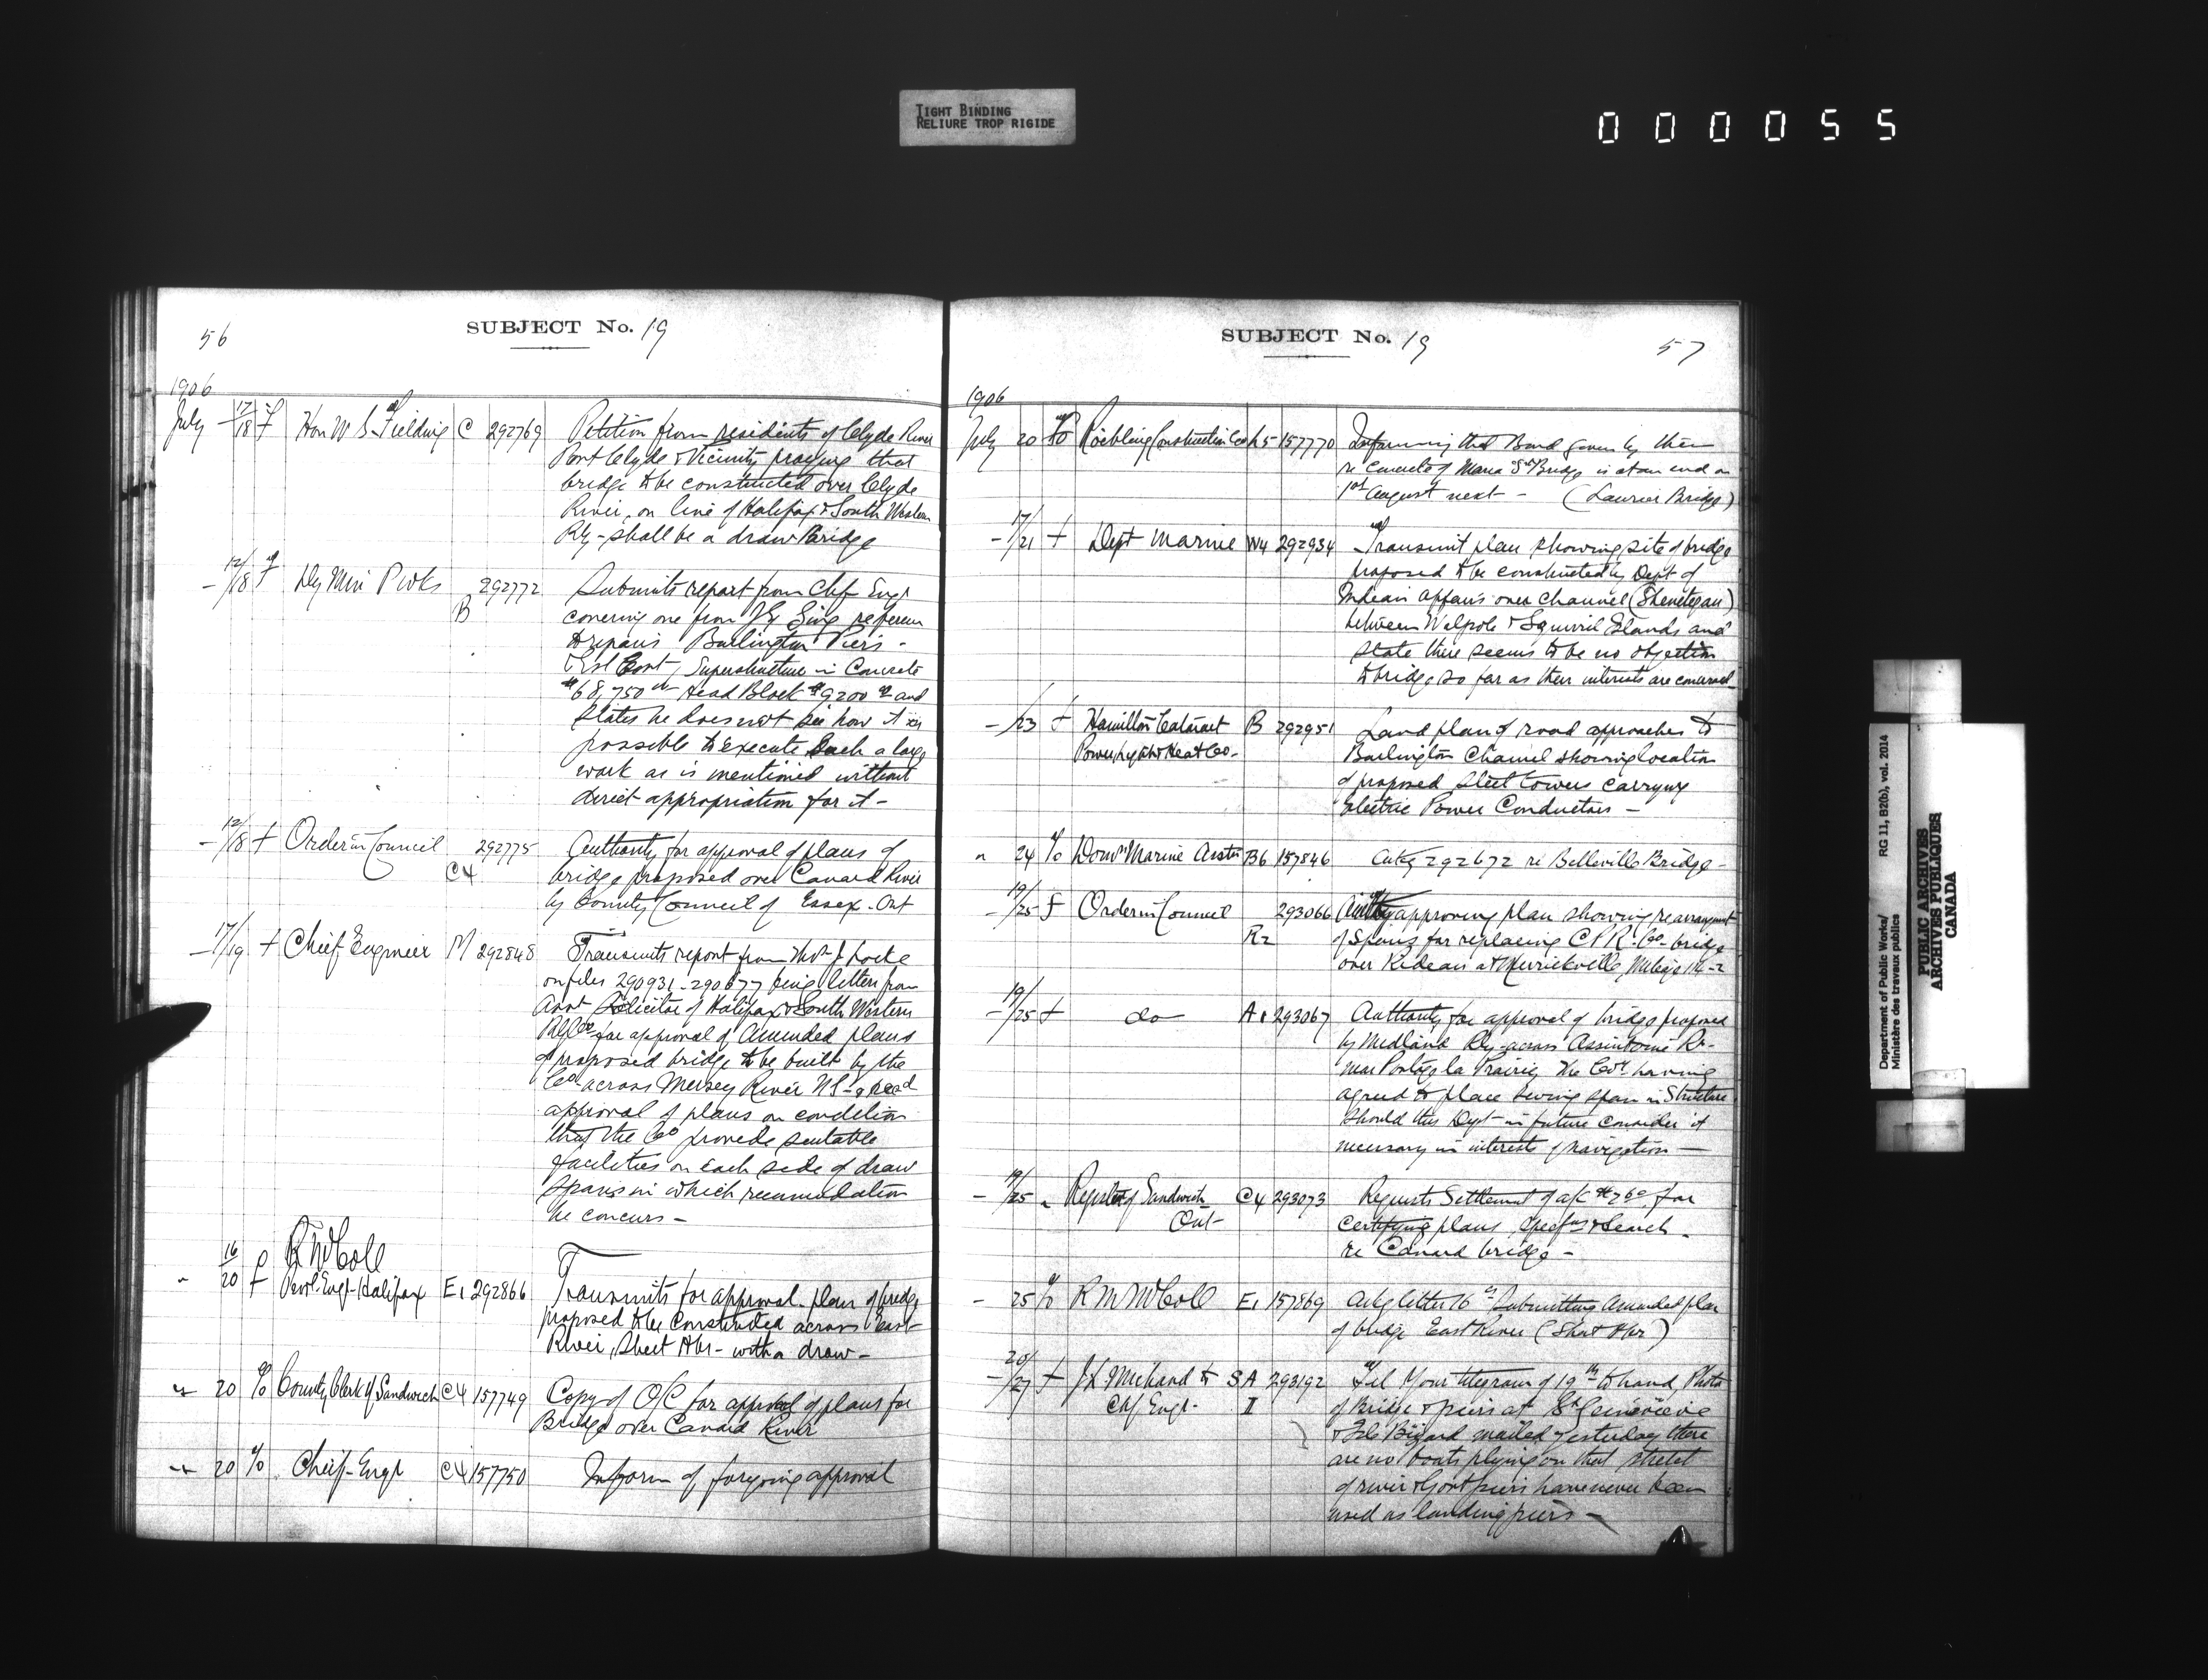 TIGHT BINDING
RELIURE TROP RIGIDE
000055
56
SUBJECT No. 19
1906
July 17/18 f Hon W S Fielding C 292769 Petition from residents of Clyde River
Port Clyde & Vicinity praying that
bridge to be constructed over Clyde
River, on line of Halifax & South Western
Rly - shall be a draw Bridge
- 12/18 f Dy Min P Wks B 292772 Submits report from Chf Engr
covering one from J G Sing reference
to repairs Burlington Piers -
Est Cost, Superstructure in Concrete
$68,750 Head Block $9200 and
states he does not see how it is
possible to execute such a large
work as is mentioned without
direct appropriation for it -
- 12/18 f Order in Council C4 292775 Authority for approval of plans of
bridge proposed over Canard River
by County Council of Essex - Ont
- 17/19 f Chief Engineer M 292848 Transmits report from J Locke
on files 290931 - 290677 being letters from
Asst Solicitor of Halifax & South Western
Rly Co for approval of Amended plans
of proposed bridge to be built by the
Co across Mersey River NS -
approval of plans on condition
that the Co provide suitable
facilities on each side of draw
spans in which recommendation
he concurs -
" 16/20 f R McColl
Engr Halifax E1 292866 Transmits for approval plan of bridge
proposed to be constructed across East
River, Sheet Hbr - with a draw -
" 20 o/o County Clerk of Sandwich C4 157749 Copy of O/C for approval of plans for
Bridge over Canard River
" 20 o/o Chief Engr C4 157750 Inform of foregoing approval
SUBJECT No. 19
57
1906
July 20 Roebling Construction Co L5 157770 Informing that Bond given by them
re concrete of Maria St Bridge is at an end on
1st August next - (Laurier Bridge)
- 17/21 f Dept Marine W4 292934 Transmit plan showing site of bridge
proposed to be constructed by Dept of
Indian Affairs over channel (Shenetegau)
between Walpole & Squirril Islands and
state there seems to be no objection
to bridge so far as their interests are concerned -
- /23 f Hamilton Cataract B 292951 Land plan of road approaches to
Power, Light & Heat Co - Burlington Channel showing location
of proposed steel towers carrying
Electric Power Conductors -
" 24 o/o Domn Marine Assn B6 157846 Ackg 292672 re Belleville Bridge -
- 19/25 f Order in Council R2 293066 approving plan showing rearrangmt
of Spans for replacing C P R Co bridge
over Rideau at Merrickville, Mileage 114-2
- 19/25 f do A1 293067 Authority for approval of bridge proposed
by Midland Ry across Assiniboine Rr -
near Portage la Prairie, the Co having
agreed to place swing span in Structure
should this Dept in future consider it
necessary in interests of navigation -
- 19/25 " Register of Sandwich C4 293073 Requests Settlement of a/c for
Ont - certifying plans, specfns & Search -
re Canard bridge -
- 25 o/o R McColl E1 157869 Ackg letter 16th Submitting Amended plan
of bridge East River (Sheet Hbr)
- 20/27 f J L Michaud to SA 293192 Tel Your telegram of 19th to hand, Photo
Chf Engr - II of Bridge & piers at St Genevieve
& Ile Bizard mailed yesterday there
are no boats plying on that stretch
of river & Govt piers have never been
used as landing piers -
Department of Public Works/
Ministère des travaux publics
RG 11, B2(b), vol. 2014
PUBLIC ARCHIVES
ARCHIVES PUBLIQUES
CANADA